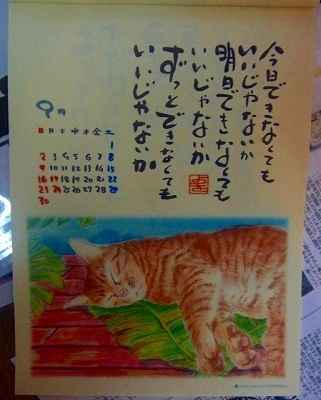 今日できなくても
いいじゃないか
明日できなくても
いいじゃないか
ずっとできなくても
いいじゃないか
9月
日 月 火 水 木 金 土
1
2 3 4 5 6 7 8
9 10 11 12 13 14 15
16 17 18 19 20 21 22
23 24 25 26 27 28 29
30